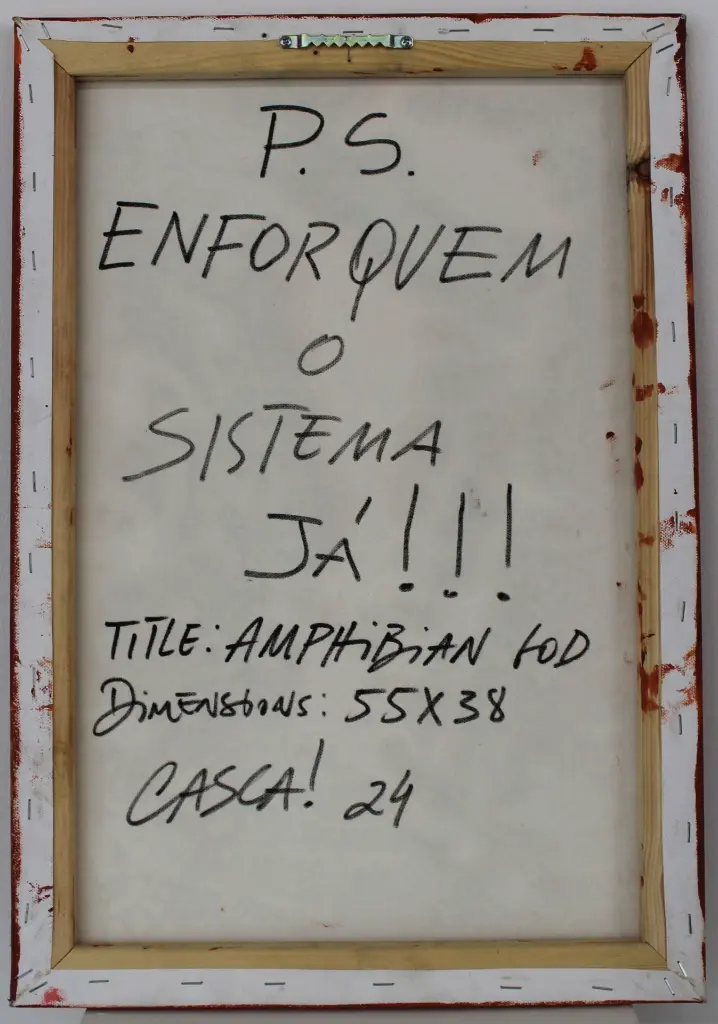 P.S.
ENFORQUEM
O
SISTEMA
JÁ!!!
TITLE: AMPHiBiAN GOD
DiMENSiONS: 55X38
CASCA! 24